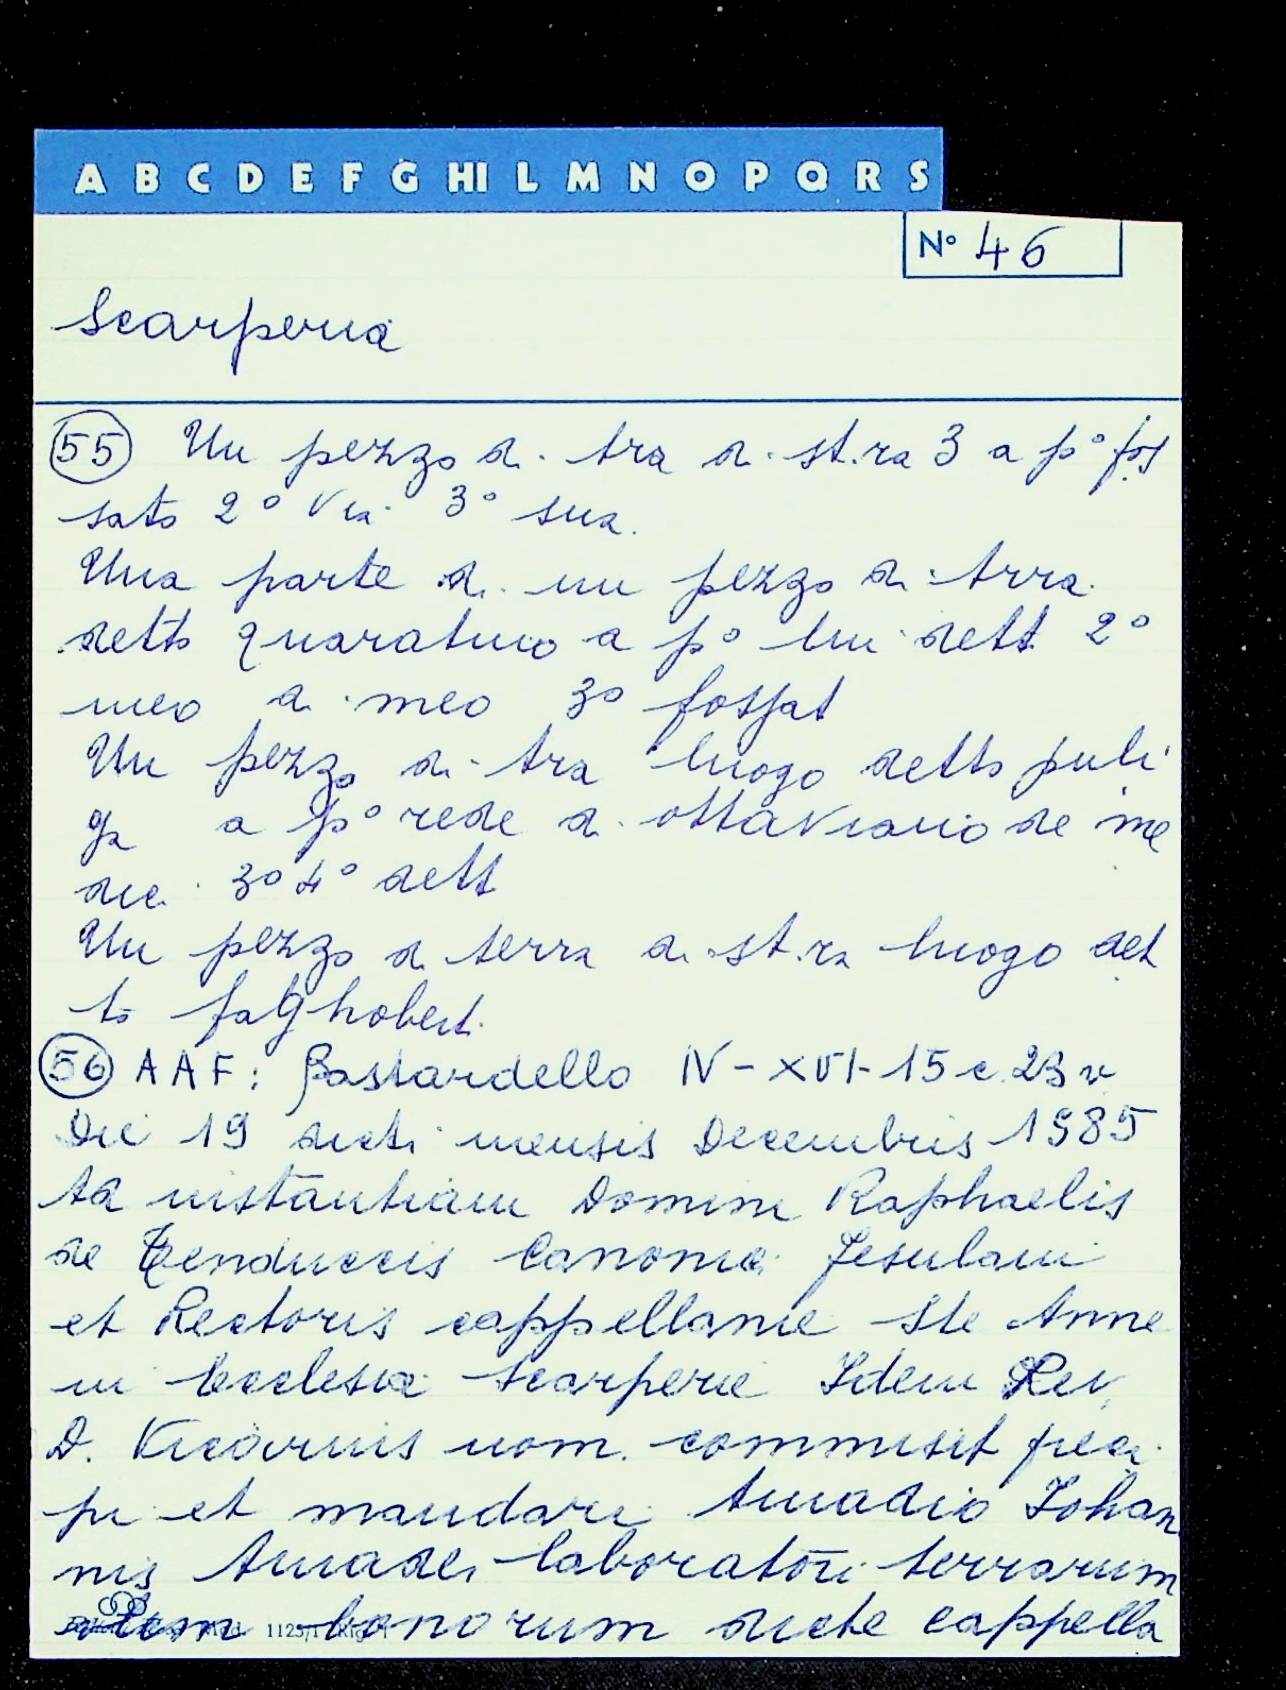 A B C D E F G HI L M N O P Q R S
N° 46
Scarperia
55 Un pezzo di tra di st.ra 3 a p° fos
sato 2° via 3° sua.
Una parte di un pezzo di terra
detto quaratino a p° lui dett 2°
meo di meo 3° fossat
Un pezzo di tra luogo detto puli
ga a p° rede di ottaviano de me
dici 3° 4° dett
Un pezzo di terra di st.ra luogo det
to
56 AAF: Bastardello IV - XVI - 15 c. 23 v
Die 19 dicti mensis Decembris 1585
Ad instantiam Domini Raphaelis
de Tenduccis Canonici Fesulani
et Rectoris cappellanie Ste Anne
in Ecclesia Scarperie Idem Rev.
D. Vicarius nom. commisit preci
pi et mandari Amadio Johan
nis Amadei laboratori terrarum
bonorum dicte cappella